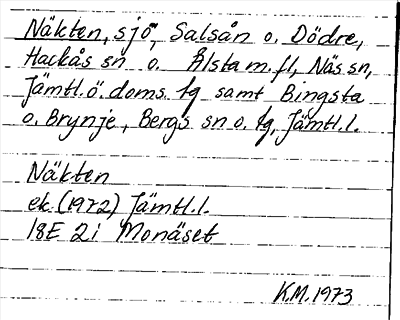 Näkten, sjö, Salsån o. Dödre,
Hackås sn o. Ålsta m.fl, Näs sn,
Jämtl. ö. doms. tg samt Bingsta
o. Brynje, Bergs sn o. tg, Jämtl. l.
Näkten
ek. (1972) Jämtl. l.
18E 2i Monäset
K.M. 1973